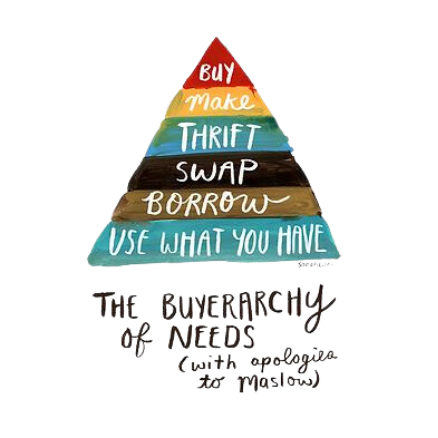 BUY
make
THRIFT
SWAP
BORROW
USE WHAT YOU HAVE
THE BUYERARCHY
of NEEDS
(with apologies
to maslow)